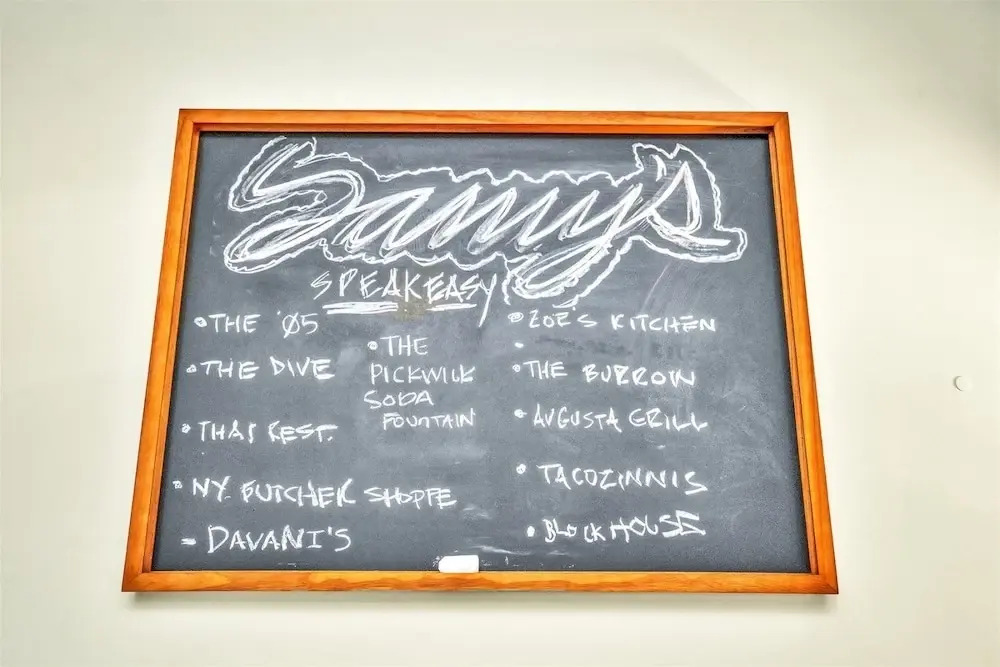 Samy's
SPEAKEASY
• THE '05
• THE DIVE
• THAI REST.
• NY BUTCHER SHOPPE
- DAVANI'S
• THE
PICKWICK
SODA
FOUNTAIN
• ZOE'S KITCHEN
•
• THE BURROW
• AUGUSTA GRILL
• TACOZINNIS
• BLOCKHOUSE